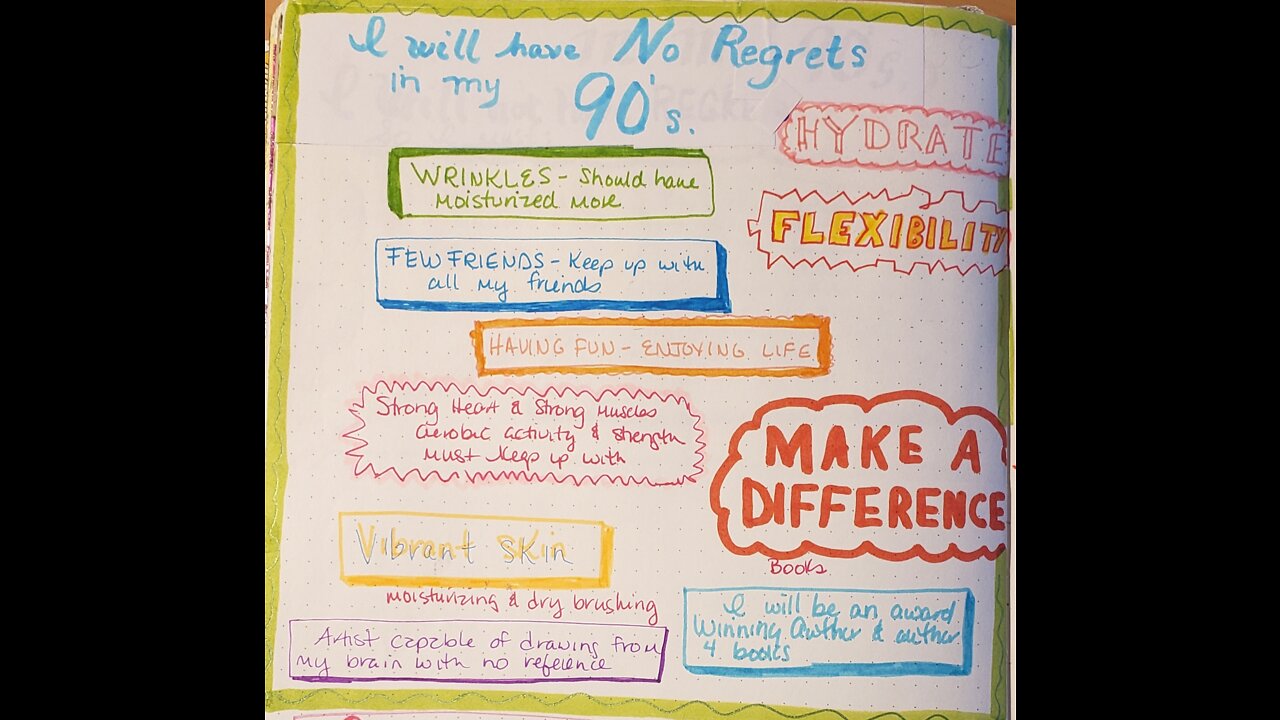 I will have No Regrets
in my 90's.
HYDRATE
WRINKLES - Should have
moisturized more
FLEXIBILITY
FEW FRIENDS - Keep up with
all my friends
HAVING FUN - ENJOYING LIFE
Strong Heart & Strong Muscles
aerobic activity & strength
must keep up with
MAKE A
DIFFERENCE
Vibrant skin
Books
moisturizing & dry brushing
I will be an award
winning author & author
4 books
Artist capable of drawing from
my brain with no reference